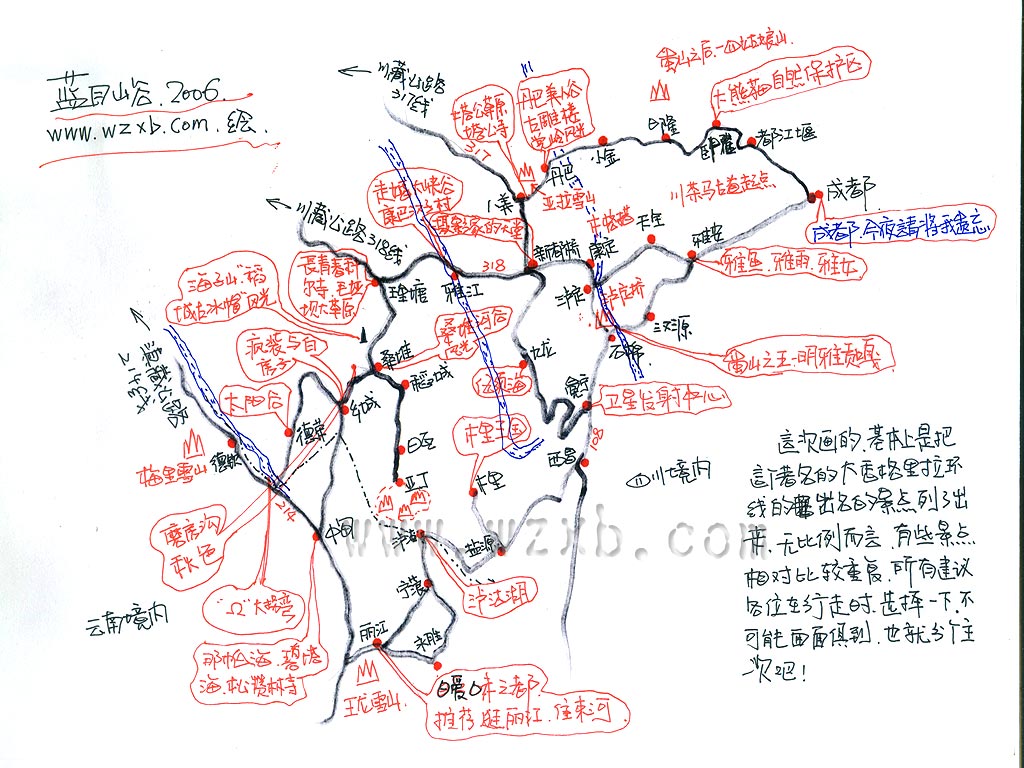 蓝月山谷.2006.
www.wzxb.com.绘.
川藏公路
317线
317
塔公草原
塔公寺
丹巴美人谷
古雕楼
党岭风光
蜀山之后-四姑娘山
大熊猫自然保护区
日隆
卧龙
都江堰
小金
丹巴
八美
亚拉雪山
川茶马古道起点
成都
成都.今夜請将我遺忘
走婚大峡谷
摄影家的天堂
川藏公路318线
318
新都桥
康定
天全
雅安
雅鱼.雅雨.雅女
泸定
泸定桥
汉源
石棉
蜀山之王-明雅贡嘎
長青春科
尔寺.毛垭
坝大草原
理塘
雅江
海子山"稻
城古冰帽"风光
桑堆河谷
风光
桑堆
稻城
日瓦
亚丁
九龙
伍须海
冕宁
卫星发射中心
108
西昌
木里王国
木里
四川境内
滇藏公路
214线
疯装与白
房子
太阳谷
乡城
德荣
德钦
梅里雪山
214
中甸
磨房沟
秋色
"Ω"大拐弯
云南境内
那帕海.碧塔
海.松赞林寺
泸沽湖
盐源
宁蒗
丽江
永胜
玉龙雪山
推荐.逛丽江.住束河
www.wzxb.com
这次画的.基本上是把
这个著名的大香格里拉环
线的出名的景点列了出
来.无比例而言.有些景点
相对比较重复.所有建议
各位在行走时.选择一下.不
可能面面俱到.也就当个主
一次吧!